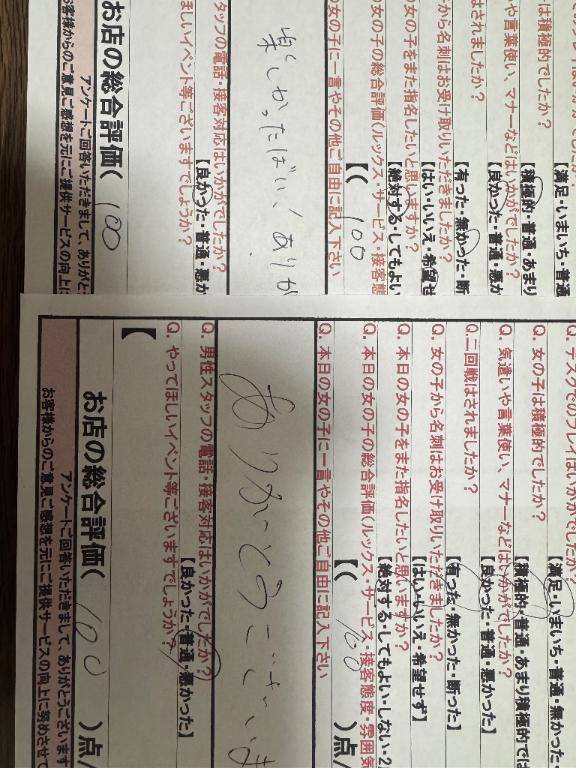 は積極的でしたか？
【満足・いまいち・普通
や言葉使い、マナーなどはいかがでしたか？
【積極的・普通・あまり
されましたか？
【良かった・普通・悪か
から名刺はお受け取りいただきましたか？
【有った・無かった・断
の女の子をまた指名したいと思いますか？
【はい・いいえ・希望せ
の女の子の総合評価（ルックス・サービス・接客態
【絶対する・してもよい
【（ 100
の女の子に一言やその他ご自由に記入下さい
楽しかったばい！ありが
タッフの電話・接客対応はいかがでしたか？
【良かった・普通・悪か
ほしいイベント等ございますでしょうか？
お店の総合評価（ 100
アンケートご回答いただきまして、ありがと
お客様からのご意見ご感想を元にご提供サービスの向上に
Q. デスクでのプレイはいかが
【満足・いまいち・普通・無かった・
Q. 女の子は積極的でしたか？
【積極的・普通・あまり積極的では
Q. 気遣いや言葉使い、マナーなどはいかがでしたか？
【良かった・普通・悪かった】
Q. 二回戦はされましたか？
【有った・無かった・断った】
Q. 女の子から名刺はお受け取りいただきましたか？
【はい・いいえ・希望せず】
Q. 本日の女の子をまた指名したいと思いますか？
【絶対する・してもよい・しない・2
Q. 本日の女の子の総合評価（ルックス・サービス・接客態度・雰囲気
【（ 100 ）点/
Q. 本日の女の子に一言やその他ご自由に記入下さい
ありがとうございま
Q. 男性スタッフの電話・接客対応はいかがでしたか？
【良かった・普通・悪かった】
Q. やってほしいイベント等ございますでしょうか？
【
お店の総合評価（ 100 ）点/
アンケートご回答いただきまして、ありがとうございます
お客様からのご意見ご感想を元にご提供サービスの向上に努めさせて